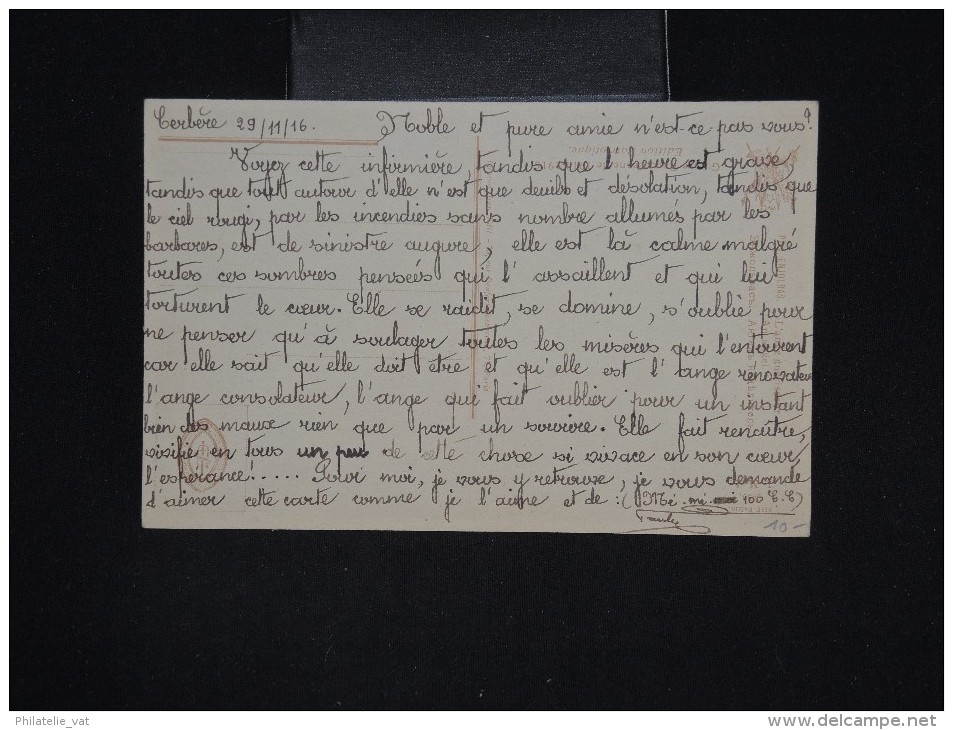 Cerbère 29/11/16. Noble et pure amie n'est-ce-pas vous!
Voyez cette infirmière, tandis que l'heure est grave,
tandis que tout autour d'elle n'est que deuils et désolation, tandis que
le ciel rougi, par les incendies sans nombre allumés par les
barbares, est de sinistre augure, elle est là calme malgré
toutes ces sombres pensées qui l'assaillent et qui lui
torturent le cœur. Elle se raidit, se domine, s'oublie pour
ne penser qu'à soulager toutes les misères qui l'entourent
car elle sait qu'elle doit être et qu'elle est l'ange
l'ange consolateur, l'ange qui fait oublier pour un instant
bien des maux rien que par un sourire. Elle fait renaître,
vivifie en tous un peu de cette chose si vivace en son cœur
l'espérance!..... Pour moi, je vous y retrouve, je vous demande
d'aimer cette carte comme je l'aime et de :
10-
Edition Patriotique.
Philatelie_vat
www.delcampe.net